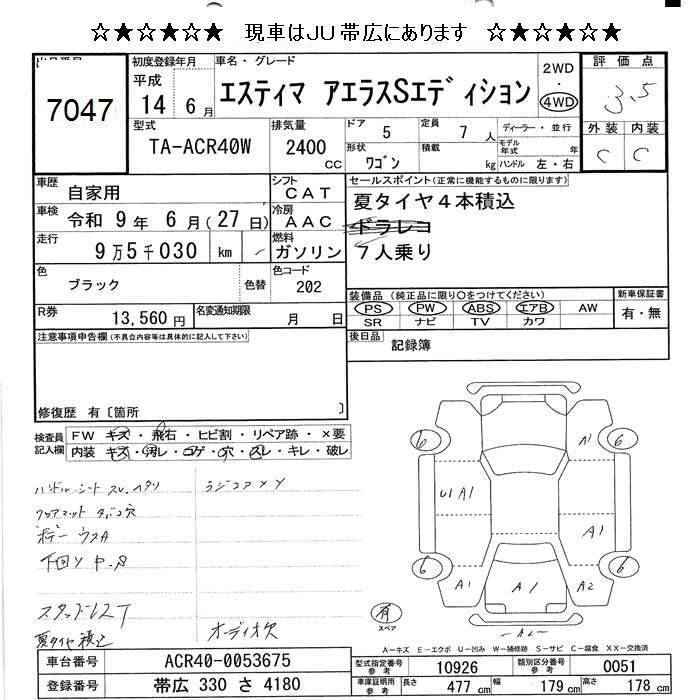 ☆★☆★☆★ 現車はJU帯広にあります ☆★☆★☆★
7047
初度登録年月
平成
14 6 月
車名・グレード
エスティマ アエラスSエディション
2WD
・
4WD
評価点
3.5
外装 内装
C C
型式
TA-ACR40W
排気量
2400
CC
ドア 5
定員 7 人
形状
ワゴン
積載
kg
ディーラー・並行
モデル年式 年
ハンドル 左・右
車歴
自家用
シフト
CAT
車検
令和 9 年 6 月(27 日)
冷房
AAC
走行
9万5千030 km
燃料
ガソリン
色
ブラック
色替
色コード
202
R券
13,560 円
名変通知期限
月 日
セールスポイント(正常に機能するものに限ります)
夏タイヤ4本積込
ドラレコ
7人乗り
装備品(純正品に限り○をつけてください)
PS PW ABS エアB AW
SR ナビ TV カワ
新車保証書
有・無
後日品
記録簿
注意事項申告欄(不具合内容等は具体的に記入して下さい)
修復歴 有〔箇所 〕
検査員記入欄
FW キズ・飛石・ヒビ割・リペア跡・×要
内装 キズ・汚レ・コゲ・穴・スレ・キレ・破レ
ハンドル シート スレ、ヘタリ
フロアマット タバコ穴
ボデー ウスA
下回り
スタッドレスT
夏タイヤ積込
オーディオ欠
6
A1
6
U1 A1
A1
6
6
A1
A1
A2
A2
有
スペア
A-キズ E-エクボ U-凹み W-補修跡 S-サビ C-腐食 XX-交換済
車台番号
ACR40-0053675
登録番号
帯広 330 さ 4180
型式指定番号
参考
10926
類別区分番号
参考
0051
車庫証明用
参考
長さ 477 cm
幅 179 cm
高さ 178 cm